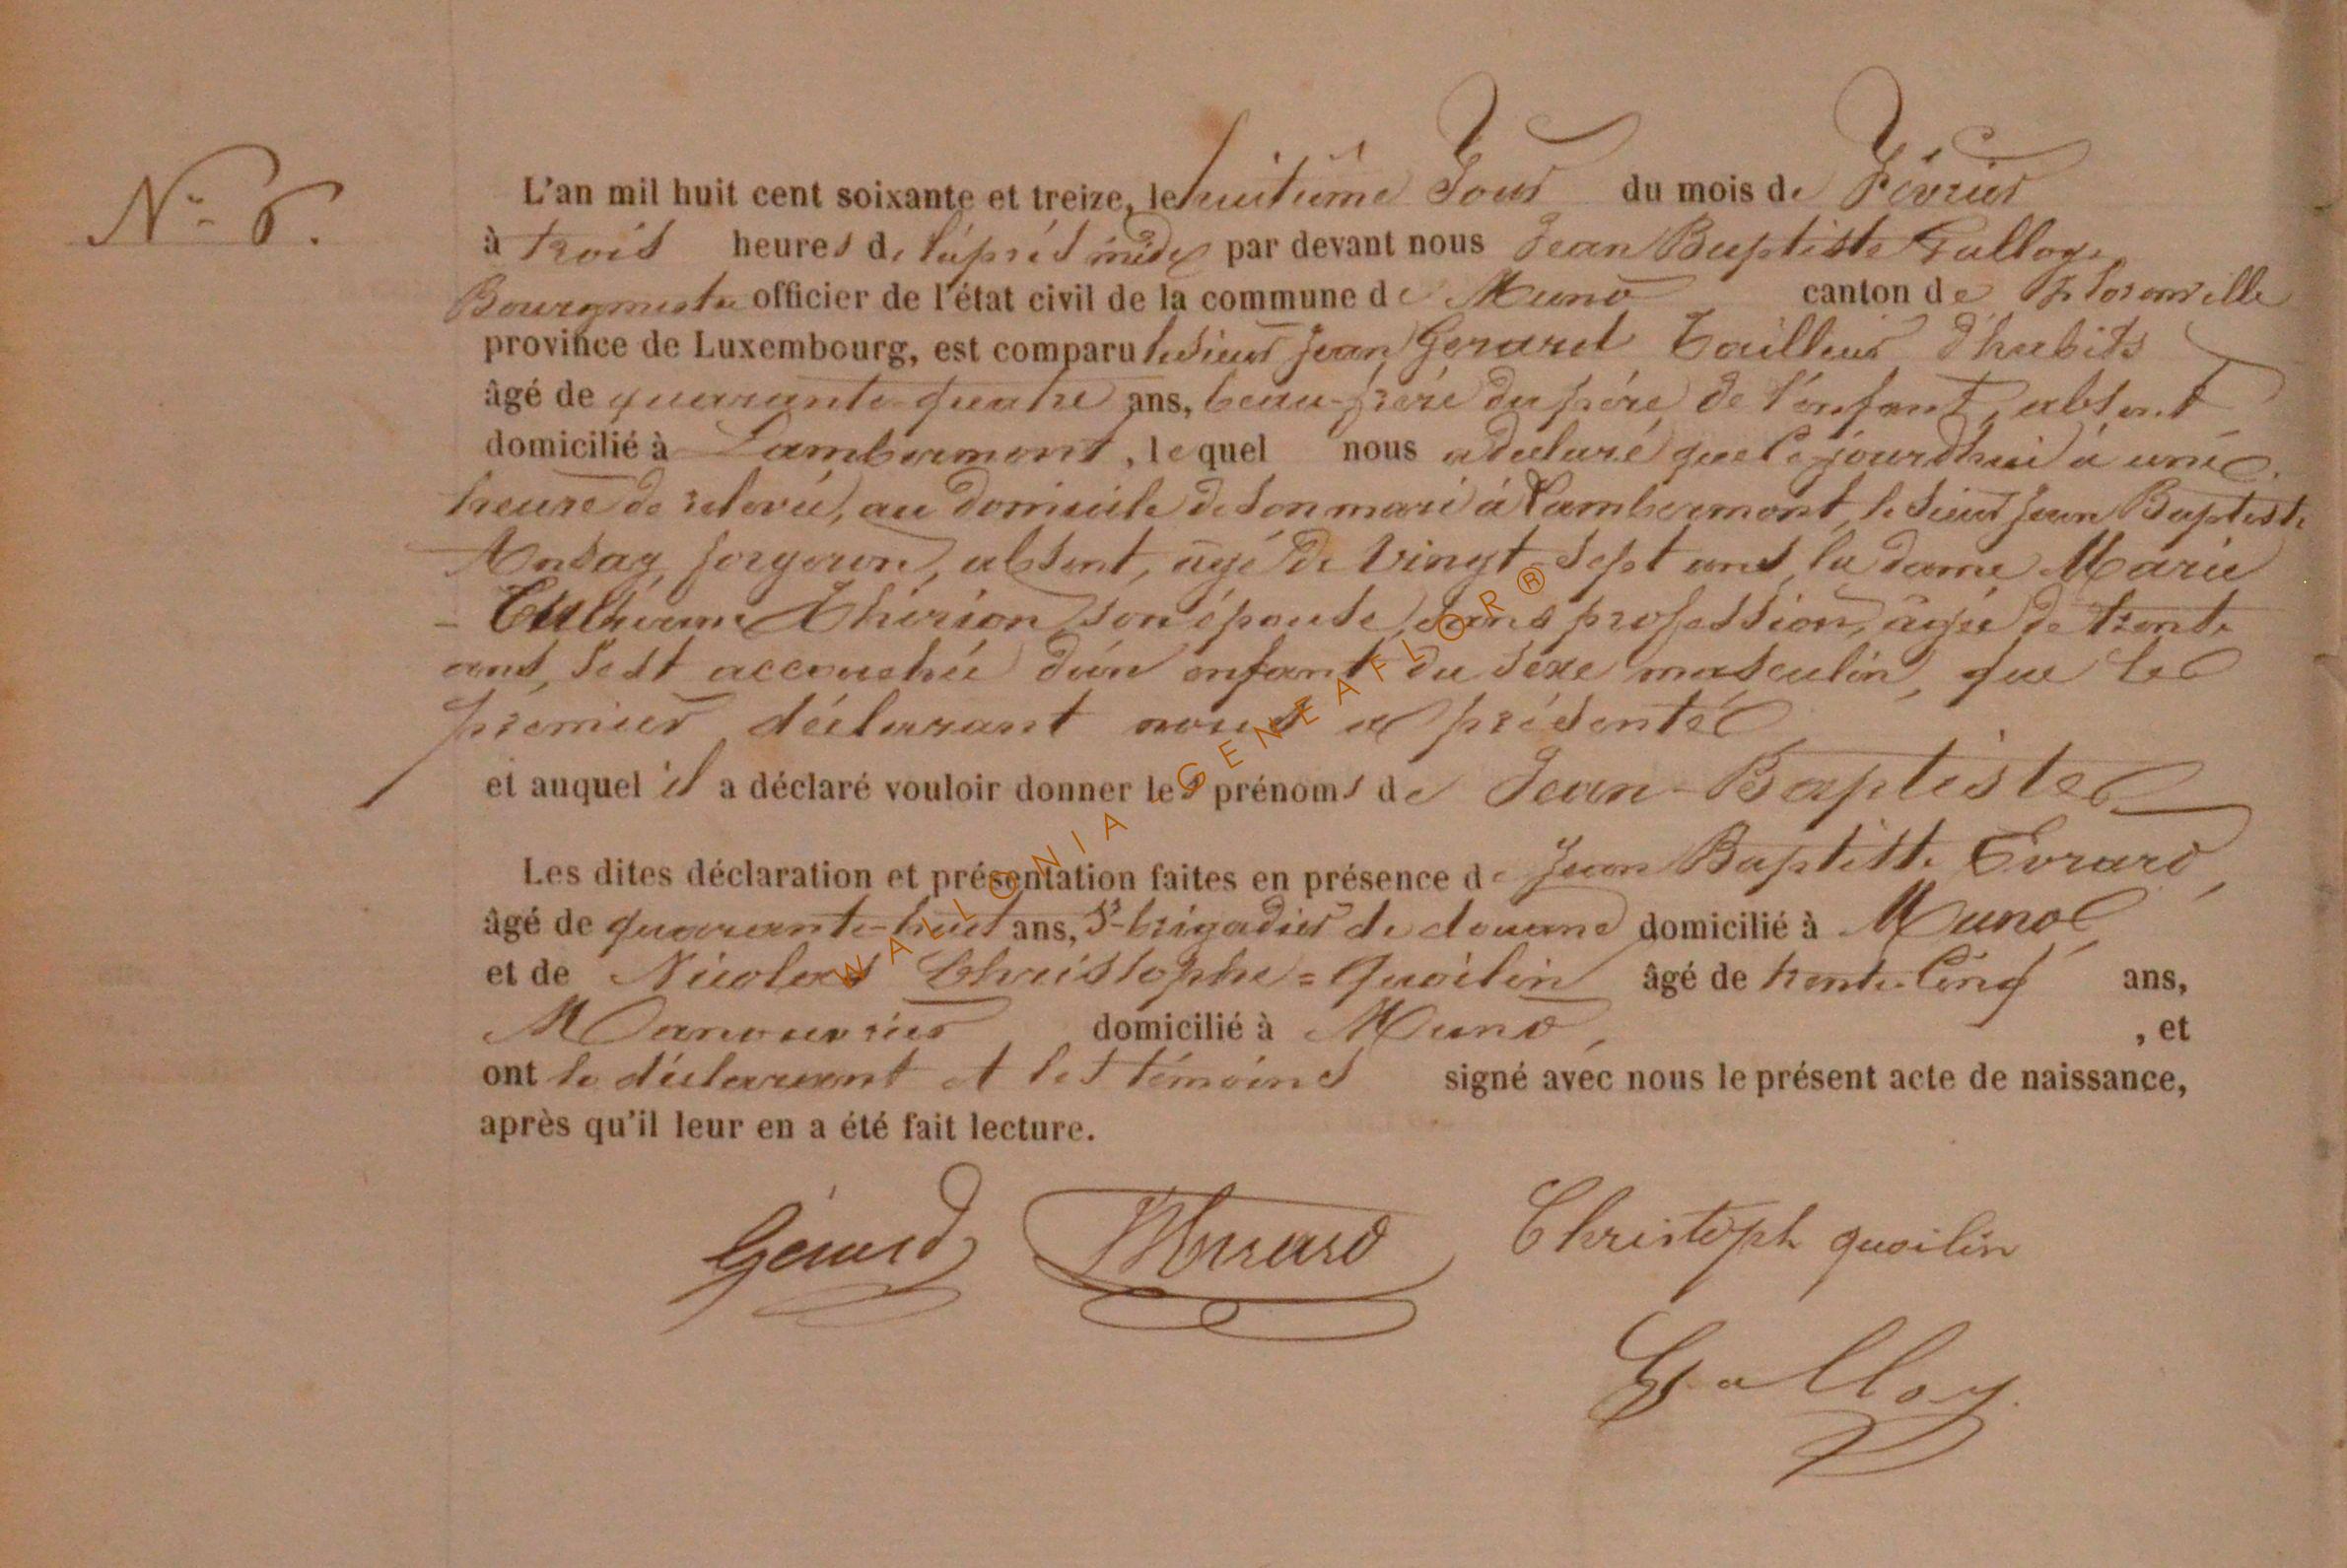 N° 6.
L'an mil huit cent soixante et treize, le huitième Jour du mois de Février
à trois heures de l'après midi par devant nous Jean Baptiste Galloy
Bourgmestre officier de l'état civil de la commune de Muno canton de Florenville
province de Luxembourg, est comparu le sieur Jean Gerard Tailleur d'habits
âgé de quarante-quatre ans, beau-frère du père de l'enfant, absent
domicilié à Lambermont, lequel nous a déclaré que cejourdhui à une
heure de relevée, au domicile de son mari à Lambermont, le sieur Jean Baptiste
forgeron, absent, agé de vingt-sept ans, la dame Marie
Thirion, son épouse, sans profession, agée de trente
ans, s'est accouchée d'un enfant du sexe masculin, que le
premier déclarant nous a présenté
et auquel il a déclaré vouloir donner les prénoms de Jean-Baptiste
Les dites déclaration et présentation faites en présence de Jean Baptiste Evrard,
âgé de quarante-huit ans, Ss-brigadier de douane domicilié à Muno
et de Nicolas Christophe=Quoilin âgé de trente-Cinq ans,
Manouvrier domicilié à Muno, , et
ont le déclarant et les témoins signé avec nous le présent acte de naissance,
après qu'il leur en a été fait lecture.
Gérard Christoph quoilin
Galloy
WALLONIA GENEAFLOR®